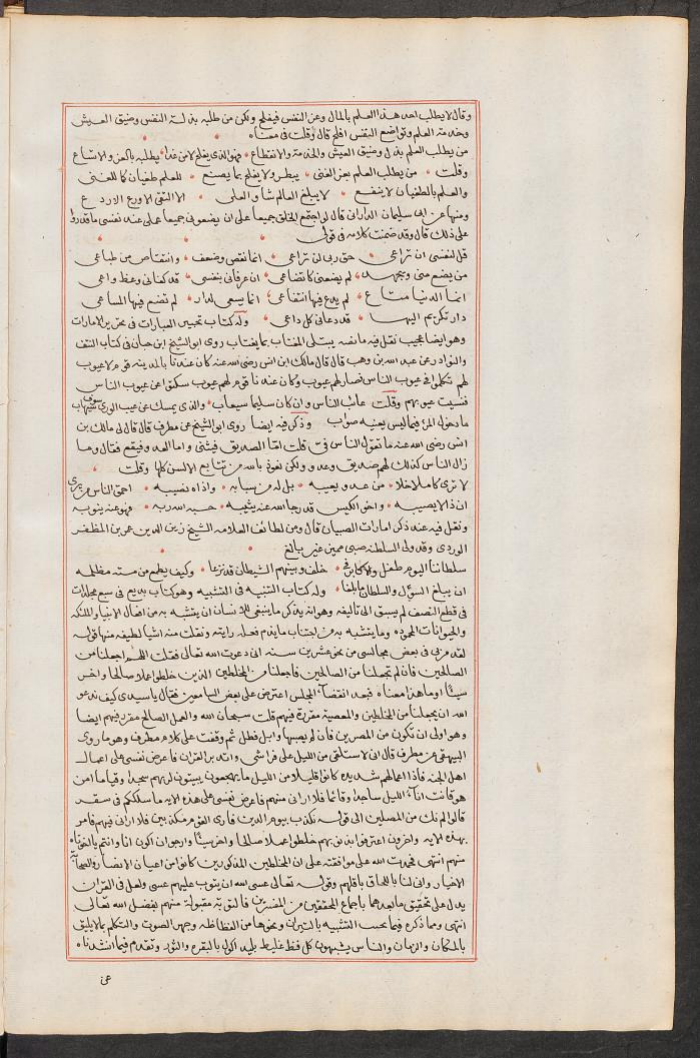 وقال لا يطلب احد هذا العلم بالمال وعز النفس فيفلح ولكن من طلبه بذلة النفس وضيق العيش
وخدمة العلم وتواضع النفس افلح قال وقلت في معناه
من يطلب العلم بذل وضيق العيش والخدمة والانقطاع فهو الذي يفلح لا من غدا يطلبه بالعز والاتساع
وقلت من يطلب العلم بعز الغنى يبطر ولا يفلح بما يصنع للعلم طغيان كما للغنى
والعلم بالطغيان لا ينفع لا يبلغ العالم شأو العلى الا التقي الاورع الاردع
ومنها عن ابي سليمان الداراني قال لو اجتمع الخلق جميعا على ان يضعوني جميعا عملي عند نفسي ما قدروا
على ذلك قال وقد ضمنت كلامه في قولي
قل لنفسي ان تراعي حق ربي لن تراعي انما نقص وضعف وانتقاص من طباعي
من يضع مني ويجهد لم يضعني كاتضاعي ان عرفاني بنفسي قد كفاني وعظ واعي
انما الدنيا متاع لم يدع فيها انتفاعي انما يسعى لدار لم تضع فيها المساعي
دار تكريم اليها قد دعاني كل داعي وله كتاب تحبير العبارات في تحرير الامارات
وهو ايضا عجيب نقل فيه ما نصه يبتلى المغتاب بما يغتاب روى ابو الشيخ ابن حيان في كتاب النتف
والنوادر عن عبد الله بن وهب قال قال مالك ابن انس رضي الله عنه كان عندنا بالمدينة قوم لا عيوب
لهم تكلموا في عيوب الناس فصار لهم عيوب وكان عندنا قوم لهم عيوب سكتوا عن عيوب الناس
فنسيت عيوبهم وقلت عائب الناس وان كان سليما سيعاب والذي يمسك عن عيب الورى سوف يهاب
ما دخول المرء فيما ليس يعنيه صواب وذكر فيه ايضا روى ابو الشيخ عن مطرف قال قال لي مالك بن
انس رضي الله عنه ما تقول الناس في قلت اما الصديق فيثني واما العدو فيقع فقال وما
زال الناس كذلك لهم صديق وعدو ولكن نعوذ بالله من تتابع الالسن كلها وقلت
لا ترى كاملا خلا من عدو يعيبه بل له من سبابه واذاه نصيبه احمق الناس من يرى
ان ذا لا يصيبه واخو الكيس قد رجا الله عنه يثيبه حسبه الله ربه فهو عنه ينوب
ونقل فيه عند ذكر امارات الصبيان قال ومن لطائف العلامة الشيخ زين الدين عمر بن المظفر
الوردي وقد ولي السلطنة صبي مميز غير بالغ
سلطاننا اليوم طفل والاكابر في خلف وبينهم الشيطان قد نزغا وكيف يطمع من مسته مظلمة
ان يبلغ السؤل والسلطان ما بلغا وله كتاب التنبيه في التشبيه وهو كتاب بديع في سبع مجلدات
في قطع النصف لم يسبق الى تاليفه وهو انه يذكر ما ينبغي للانسان ان يتشبه به من افعال الانبياء والملائكة
والحيوانات المحموده وما يتشبه به من اجتناب ما يذم فعله رايته ونقلت منه اشيا لطيفة منها قوله
لقد مر بي في بعض مجالسي من نحو عشرين سنة اني دعوت الله تعالى فقلت اللهم اجعلنا من
الصالحين فان لم تجعلنا من الصالحين فاجعلنا من المخلطين الذين خلطوا عملا صالحا واخر
سيئا او ما هذا معناه فبعد انقضاء المجلس اعترض علي بعض السامعين فقال يا سيدي كيف ندعو
الله ان يجعلنا من المخلطين والمعصية مقررة فيهم قلت سبحان الله والعمل الصالح مقرر فيهم ايضا
وهو اولى ان نكون من المصرين فان لم يصبها وابل فطل ثم وقفت على كلام مطرف وهو ما روى
البيهقي عن مطرف قال اني لاستلقي من الليل على فراشي واتدبر القران فاعرض نفسي على اعمال
اهل الجنة فاذا اعمالهم شديدة كانوا قليلا من الليل ما يهجعون يبيتون لربهم سجدا وقياما امن
هو قانت اناء الليل ساجدا وقائما فلا اراني منهم فاعرض نفسي على هذه الايه ما سلككم في سقر
قالوا لم نك من المصلين الى قوله نكذب بيوم الدين فارى القوم مكذبين فلا اراني فيهم فامر
بهذه الايه واخرون اعترفوا بذنوبهم خلطوا عملا صالحا واخر سيئا وارجو ان اكون انا وانتم يا اخوتاه
منهم انتهى فحمدت الله على موافقته على ان المخلطين المذكورين كانوا من اعيان الانصار والصحابة
الاخيار وانى لنا باللحاق باقلهم وقوله تعالى عسى الله ان يتوب عليهم عسى ولعل في القران
يدل على تحقيق ما بعدهما باجماع المحققين من المفسرين فالتوبة مقبولة منهم بفضل الله تعالى
انتهى ومما ذكره فيما يجب التشبيه بالثيران ونحوها من الفظاظه وجهر الصوت والتكلم بما لا يليق
بالمكان والزمان والناس يشبهون كل فظ غليظ بليد اكول بالبقره والثور وتقدم فيما انشدناه